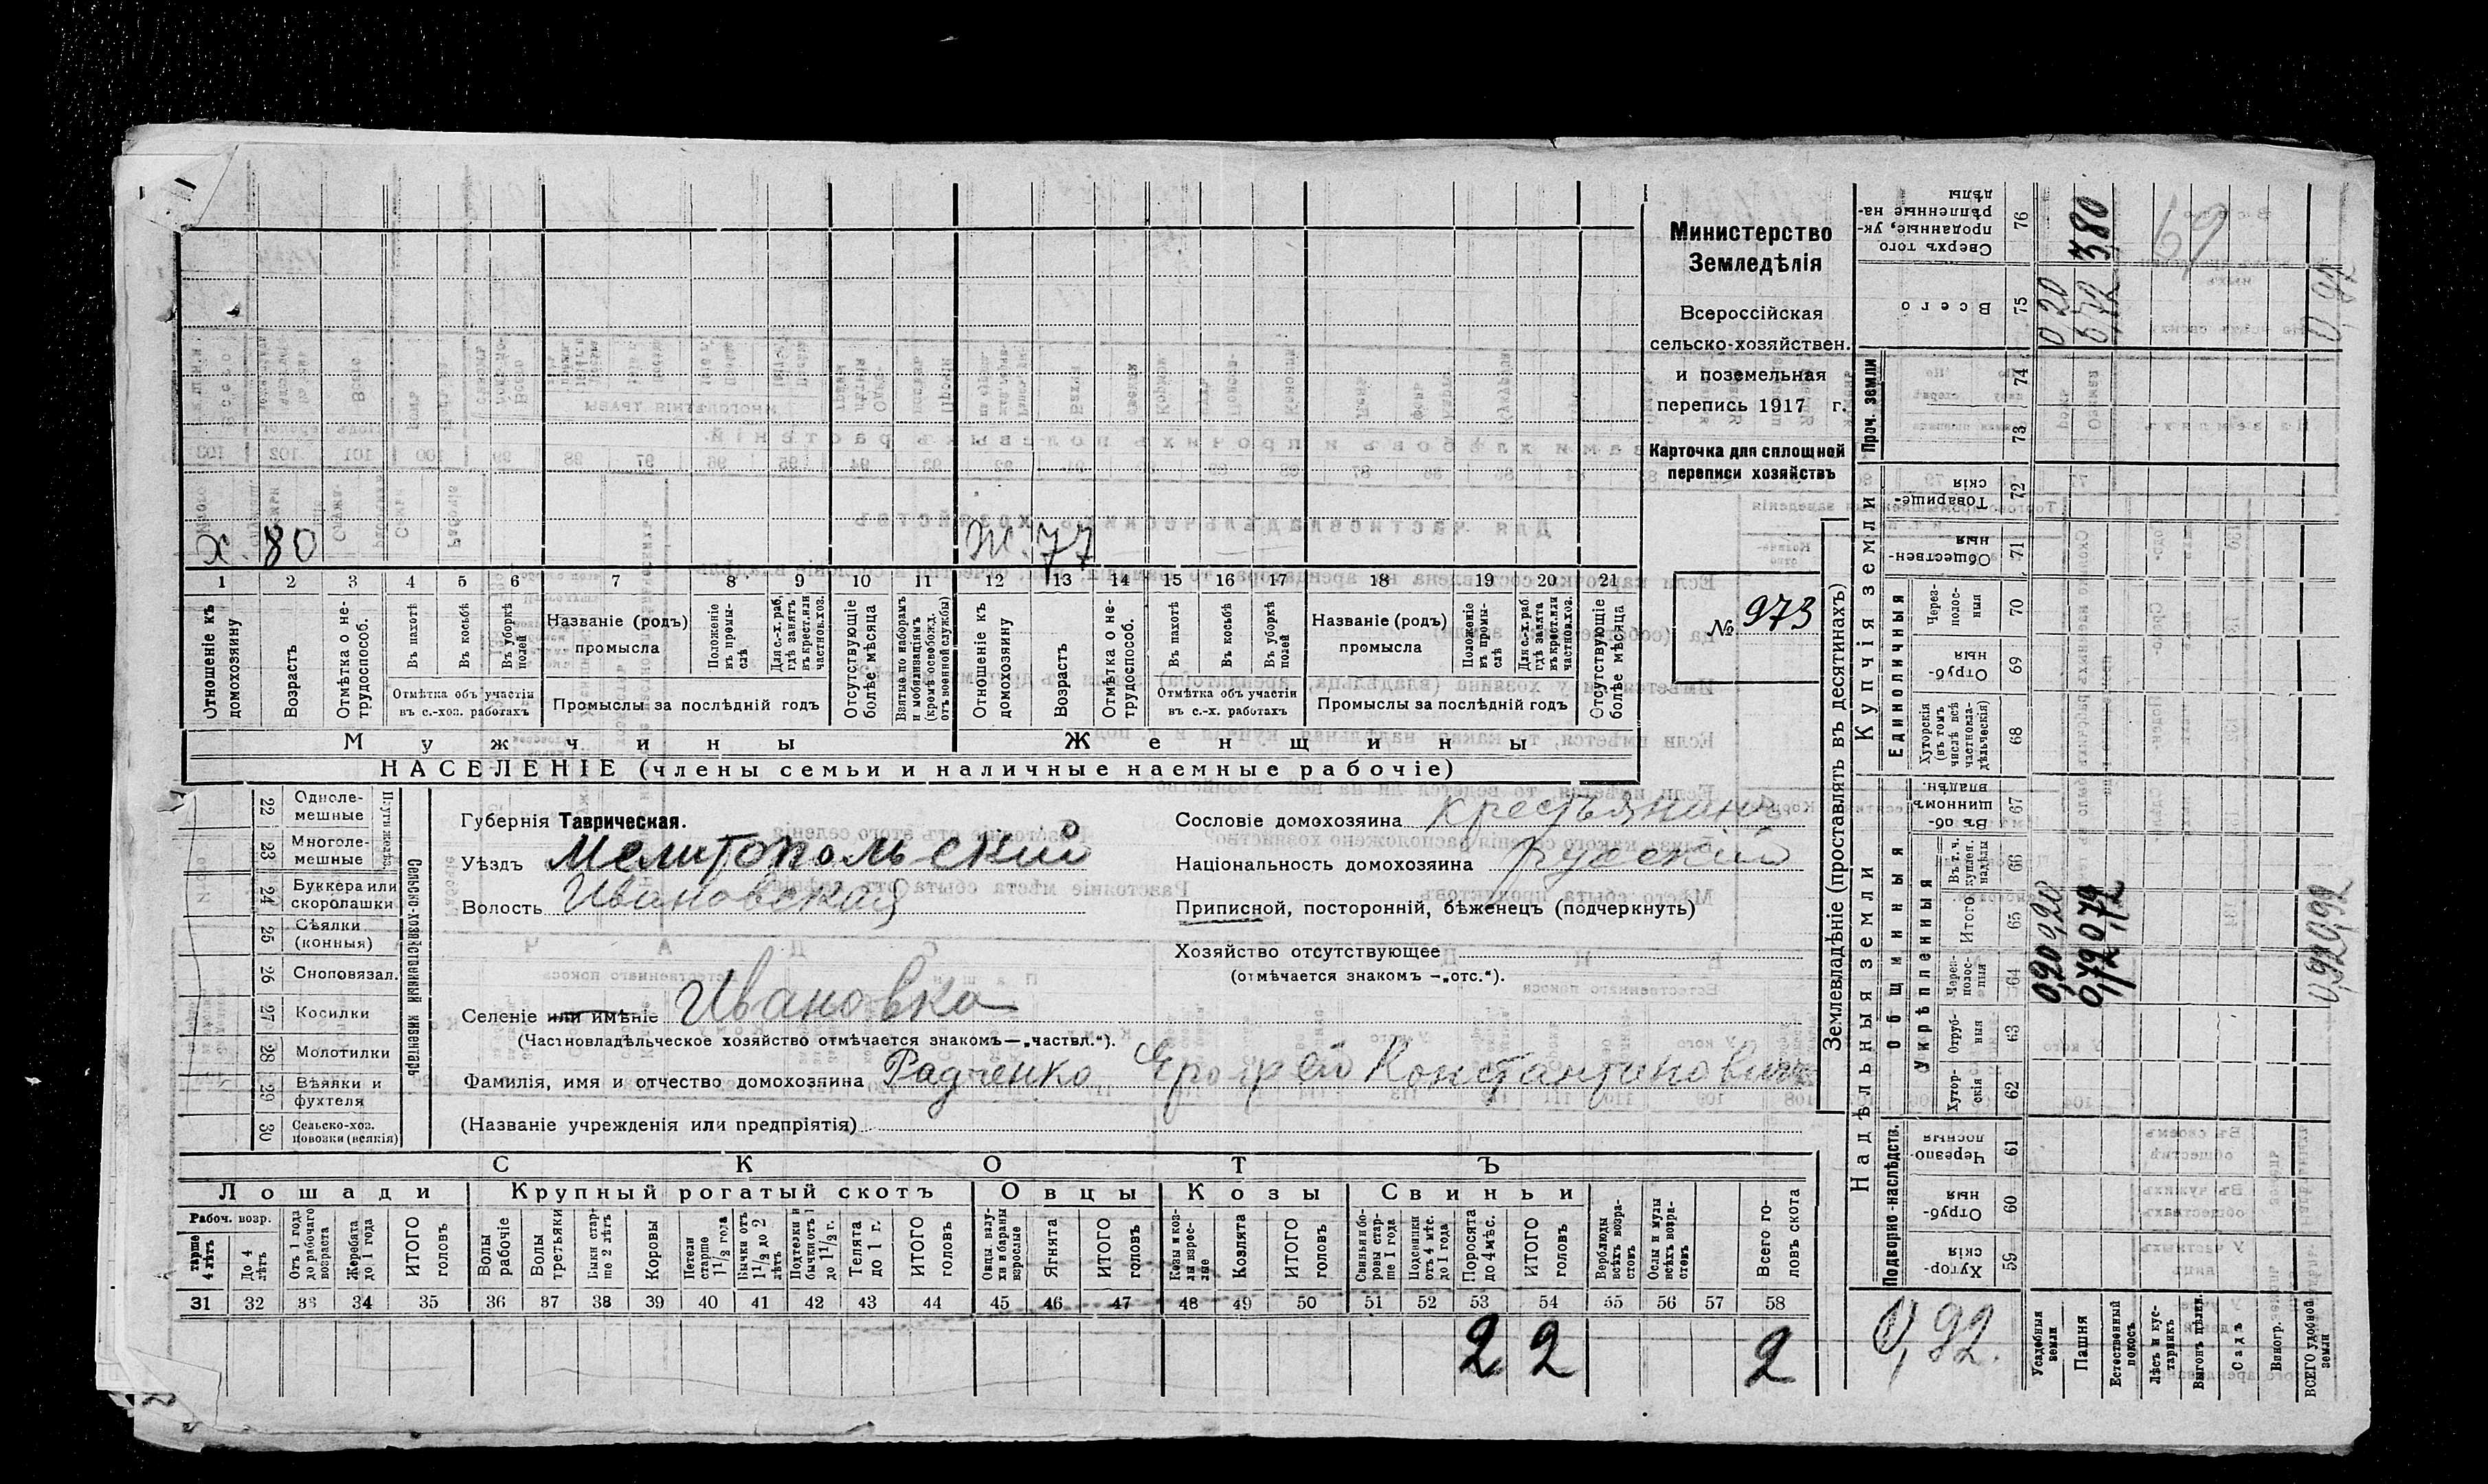 Министерство
Земледѣлія
Всероссійская
сельско-хозяйствен.
и поземельная
перепись 1917 г.
Карточка для сплошной
переписи хозяйствъ
№ 973
х. 80
Ж. 77
1 2 3 4 5 6 7 8 9 10 11 12 13 14 15 16 17 18 19 20 21
Отношеніе къ домохозяину
Возрастъ
Отмѣтка о нетрудоспособ.
Въ пахотѣ
Въ косьбѣ
Въ уборкѣ полей
Отмѣтка объ участіи
въ с.-хоз. работахъ
Названіе (родъ)
промысла
Положеніе въ промыслѣ
Для с.-х. раб. гдѣ занятъ въ крест. или частнов. хоз.
Промыслы за послѣдній годъ
Отсутствующіе болѣе мѣсяца
Взятые по наборамъ и мобилизаціямъ (кромѣ освобожд. отъ военной службы)
Отношеніе къ домохозяину
Возрастъ
Отмѣтка о нетрудоспособ.
Въ пахотѣ
Въ косьбѣ
Въ уборкѣ полей
Отмѣтка объ участіи
въ с.-х. работахъ
Названіе (родъ)
промысла
Положеніе въ промыслѣ
Для с.-х. раб. гдѣ занята въ крест. или частнов. хоз.
Промыслы за послѣдній годъ
Отсутствующіе болѣе мѣсяца
Мужчины
Женщины
НАСЕЛЕНІЕ (члены семьи и наличные наемные рабочіе)
Сельско-хозяйственный инвентарь
22 Однолемешные
23 Многолемешные
24 Буккера или скоропашки
25 Сѣялки (конныя)
26 Сноповязал.
27 Косилки
28 Молотилки
29 Вѣялки и фухтеля
30 Сельско-хоз. повозки (всякія)
Губернія Таврическая.
Уѣздъ Мелитопольский
Волость Ивановская
Сословіе домохозяина крестьянинъ
Національность домохозяина русский
Приписной, посторонній, бѣженецъ (подчеркнуть)
Хозяйство отсутствующее
(отмѣчается знакомъ —„отс.“).
Селеніе или имѣніе Ивановка
(Частновладѣльческое хозяйство отмѣчается знакомъ—„частвл.“).
Фамилія, имя и отчество домохозяина Радченко Константиновичъ
(Названіе учрежденія или предпріятія)
СКОТЪ
Лошади Крупный рогатый скотъ Овцы Козы Свиньи
Рабоч. возр.
старше 4 лѣтъ
До 4 лѣтъ
Отъ 1 года до рабочаго возраста
Жеребята до 1 года
ИТОГО головъ
Волы рабочіе
Волы третьяки
Быки старше 2 лѣтъ
Коровы
Нетели старше 1 1/2 года
Бычки отъ 1 1/2 до 2 лѣтъ
Подтелки и бычки отъ 1 до 1 1/2 г.
Телята до 1 г.
ИТОГО головъ
Овцы, валухи и бараны взрослые
Ягнята
ИТОГО головъ
Козы и козлы взрослые
Козлята
ИТОГО головъ
Свиньи и боровы старше 1 года
Подсвинки отъ 4 мѣс. до 1 года
Поросята до 4 мѣс.
ИТОГО головъ
Верблюды всѣхъ возрастовъ
Ослы и мулы всѣхъ возрастовъ
Всего головъ скота
31 32 33 34 35 36 37 38 39 40 41 42 43 44 45 46 47 48 49 50 51 52 53 54 55 56 57 58
2 2 2
Землевладѣніе (проставлять въ десятинахъ)
Надѣльныя земли
Купчія земли
Проч. земли
Подворно-наслѣдств.
Общинныя
Укрѣпленныя
Единоличныя
Хуторскія 59
Отрубныя 60
Черезполосныя 61
Хуторскія 62
Отрубныя 63
Черезполосныя 64
Итого 65
Въ т. ч. куплен. надѣлы 66
Въ общинномъ владѣн. 67
Хуторскія (въ томъ числѣ всѣ частновладѣльческія) 68
Отрубныя 69
Черезполосныя 70
Общественныя 71
Товарищескія 72
73
74
Всего 75
Сверхъ того проданные, укрѣпленные надѣлы 76
Усадебныя земли 0,20 0,20 0 20
Пашня 0,72 0,72 3,80
Естественный покосъ
Лѣсъ и кустарникъ
Выгонъ цѣлин.
Садъ
Виногр.
ВСЕГО удобной земли 0,92 0,92 0,92
0,92.
69